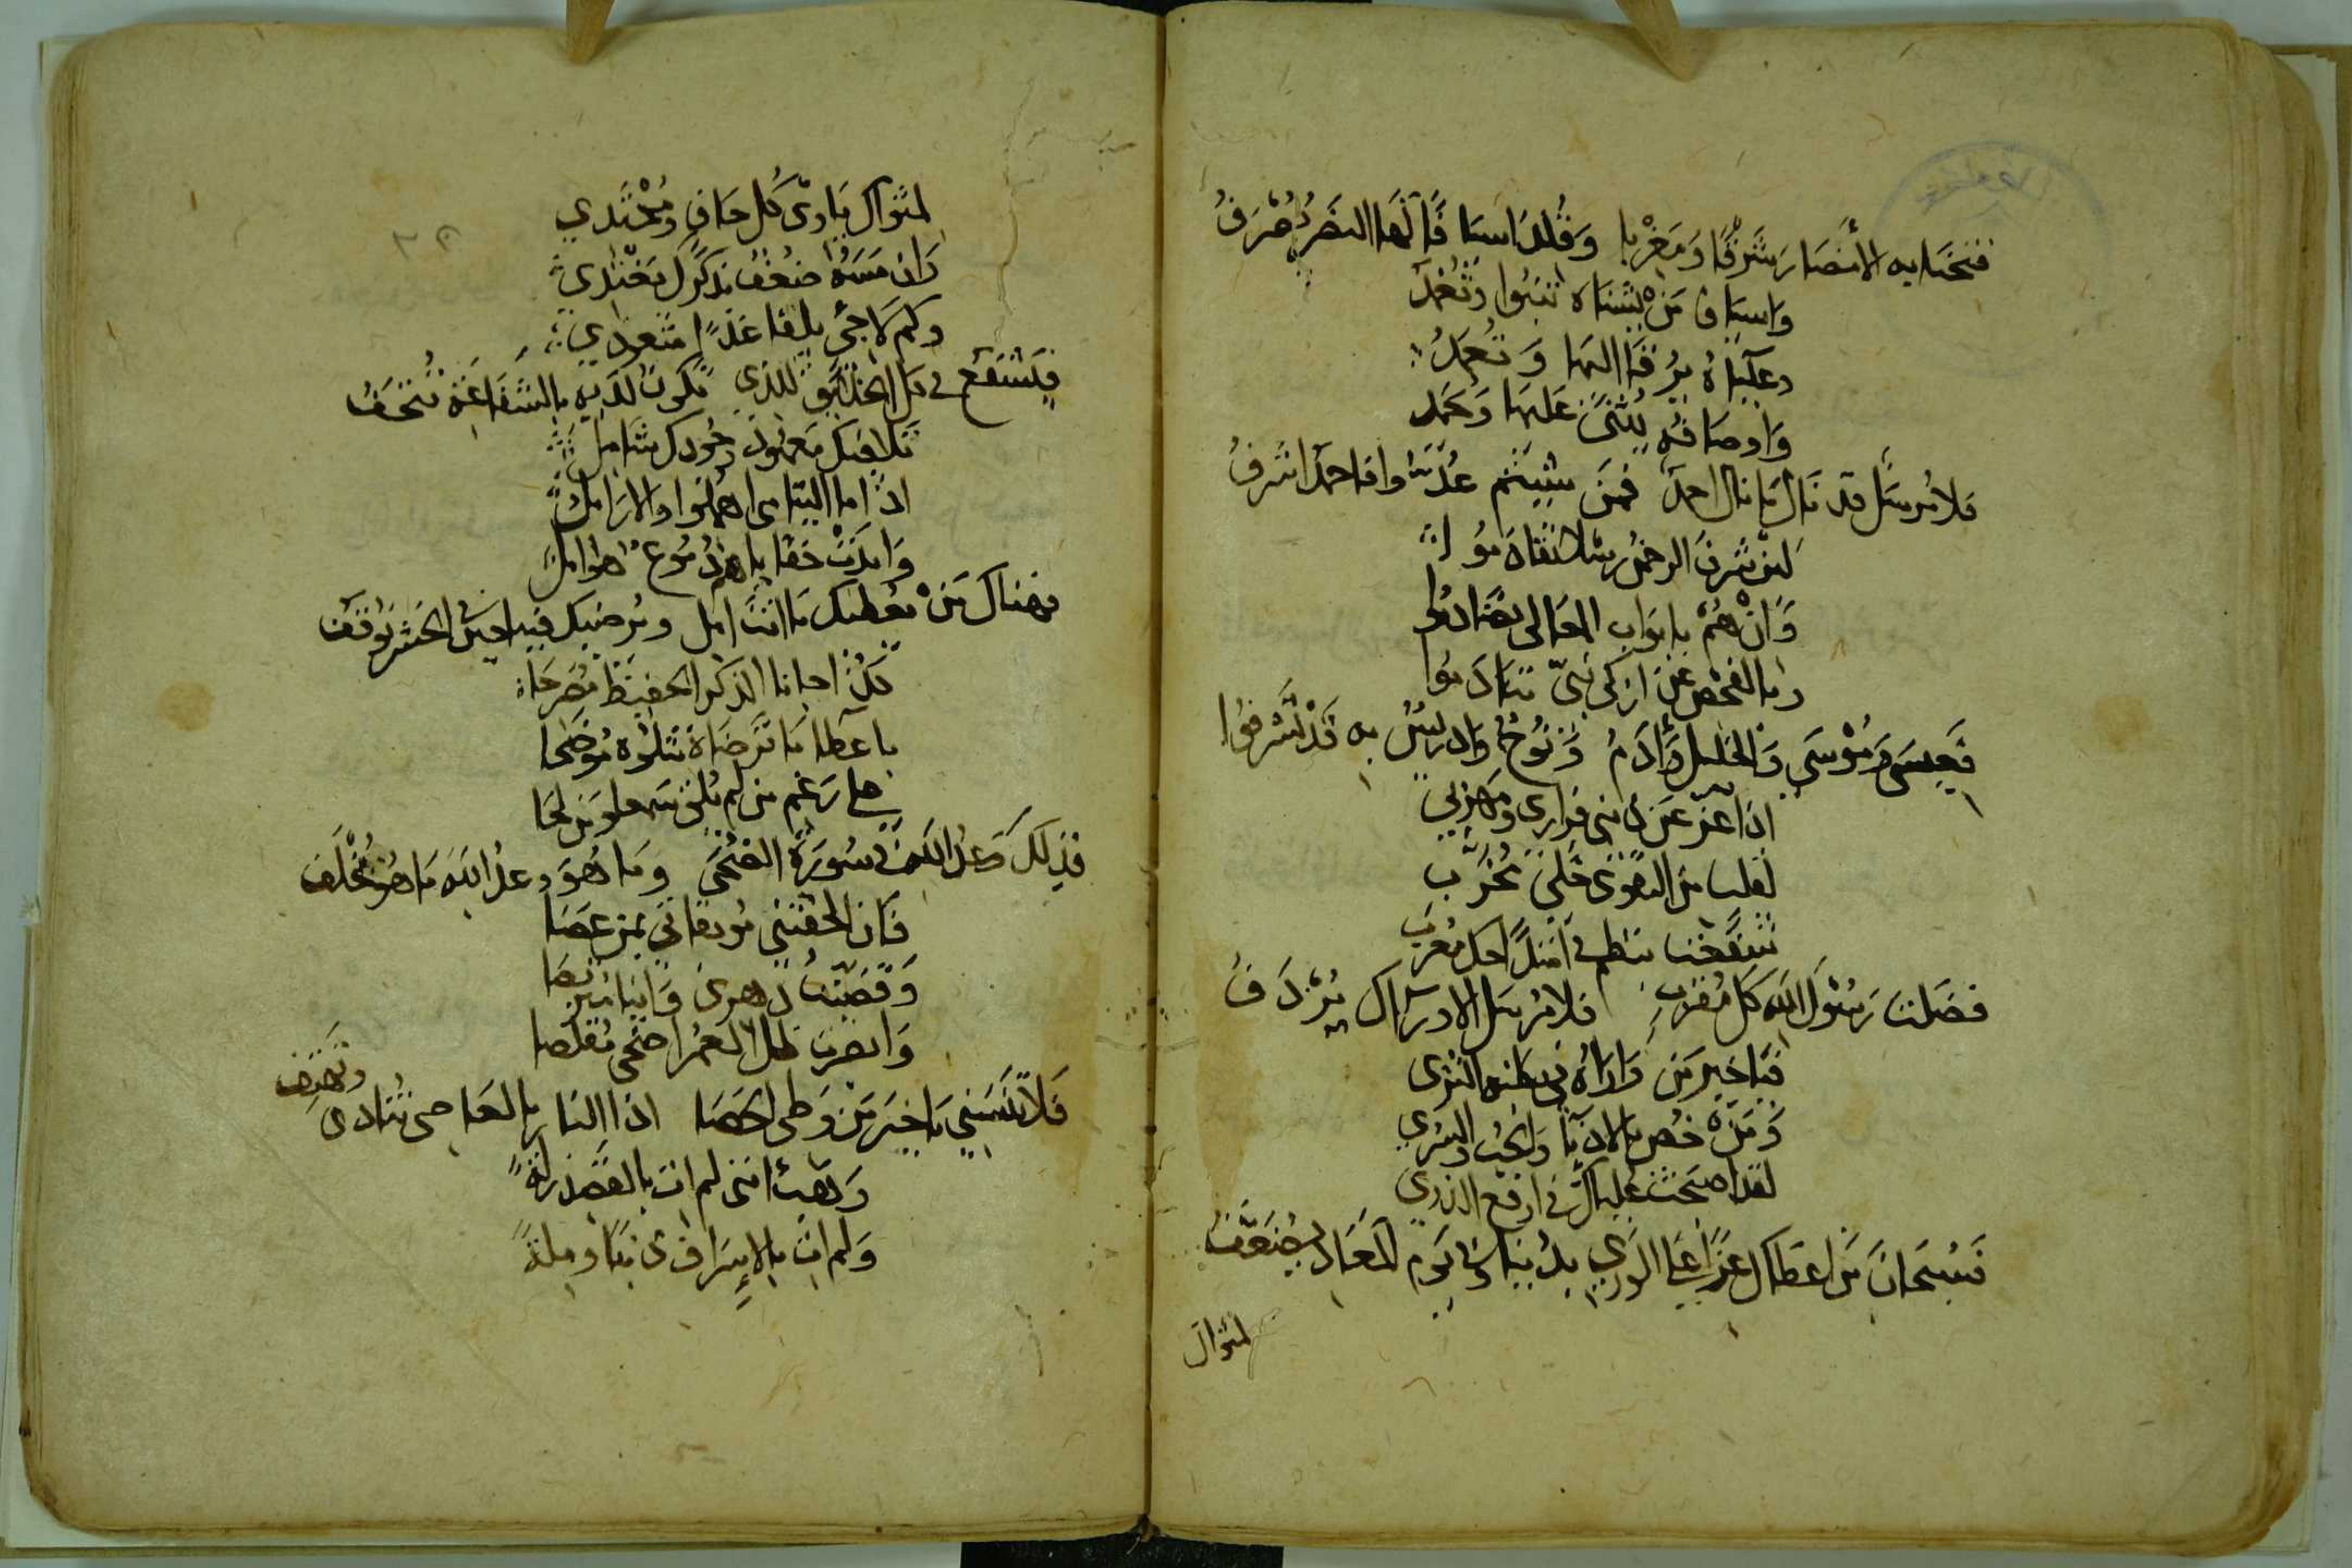 فتحنا به الأمصار شرقا ومغربا وقلد أسيافا لها النصر مصرف
وأسياف من يشناه تنبوا وتغمد
وعلياه يرقا إليها وتعمد
وأوصافه يثنى عليها وتحمد
فلا مرسل قد نال ما نال أحمد فمن شيتم عدوا فأحمد أشرف
لئن شرف الرحمن رسلا تقادموا
وأن هم بأبواب المعالي تصادموا
وما الفحص عن أزكى نبي تنادموا
فعيسى وموسى والخليل وآدم ونوح وإدريس به قد تشرفوا
إذا عز عن ذنبي فراري ومهربي
لقلب من التقوى خلي مخرب
تشفعت
فضلت رسول الله كل مقرب فلا مرسل إلا وراك يردف
فيا خير من واراه في بطنه الثرى
ومن خص بالإدنا والحب والسرى
لقد أضحت علياك في أرفع الذرى
فسبحان من أعطاك عزا على الورى بدنياك وفي يوم المعاد يضعف
لمثواك
لمثواك يأوى كل حاف ومحتدي
وإن مسه ضعف بذكرك يغتدي
وكم لاجئ يلقا غدا
فتشفع في كل الخلائق للذي تكون لديه بالشفاعة تتحف
تلافيك معهود وجودك شامل
إذا ما اليتامى أهملوا والأرامل
وأبدت خفايا هن دموع هوامل
فهناك من يعطيك ما أنت آمل ويرضيك فيها حين في الحشر توقف
لكن أحبانا الذكر الحفيظ مصرحا
بإعطا ما ترضاه نتلوه موضحا
على رغم من لم يلق سمعا ومن لحا
فذلك وعد الله في سورة الضحى وما هو وعد الله ما هو مخلف
فإن ألحقتني موبقاتي بمن عصا
وقضيت دهري فانيا متربصا
وأبصرت ظل العمر أضحى مقلصا
فلا تنسني يا خير من وطى الحصا إذا النار بالعاصي تنادى وتهتف
وهبت أنني لم آت بالقصد زلة
ولم آت بالإسراف ذنبا وملة